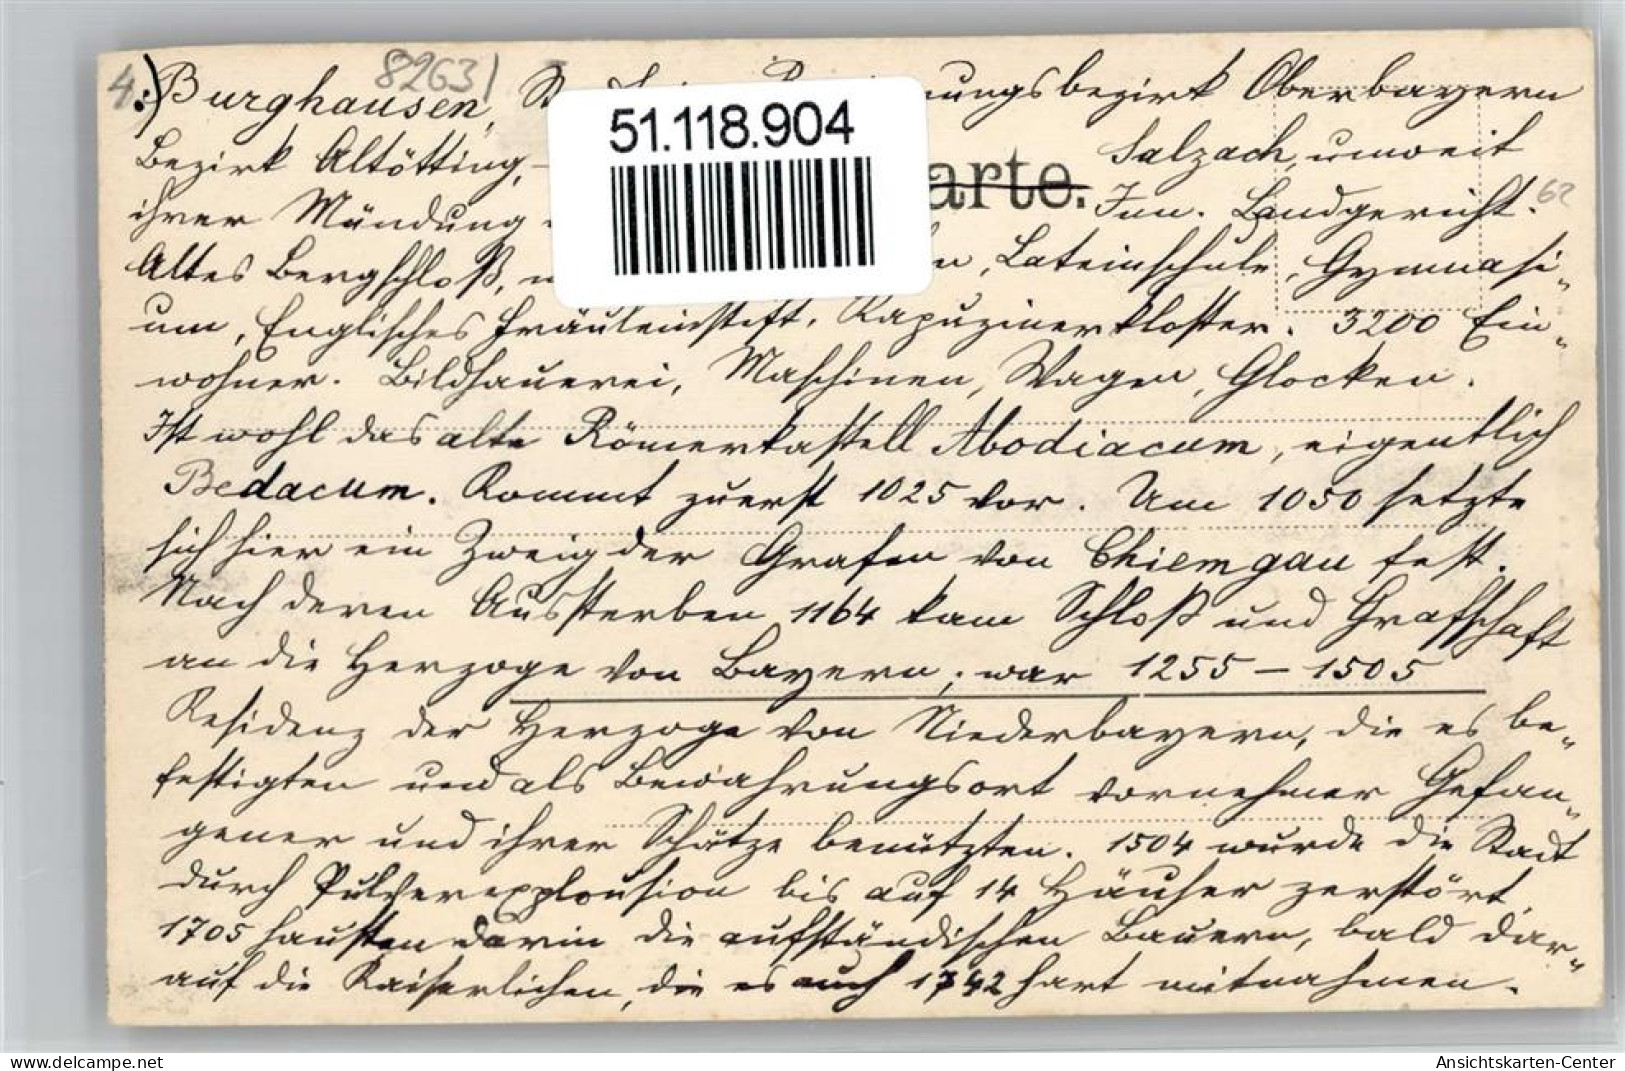 4.) Burghausen, 8263 ungsbezirk Oberbayern
51.118.904
Bezirk Altötting, Salzach, unweit
arte.
ihrer Mündung Inn. Landgericht. 62
Altes Bergschloß, n, Lateinschule, Gymnasi-
um, Englisches Fräuleinstift, Kapuzinerkloster. 3200 Ein-
wohner. Bildhauerei, Maschinen, Wagen, Glocken.
Ist wohl das alte Römerkastell Abodiacum, eigentlich
Bedacum. Kommt zuerst 1025 vor. Um 1050 setzte
sich hier ein Zweig der Grafen von Chiemgau fest.
Nach deren Aussterben 1164 kam Schloß und Grafschaft
an die Herzoge von Bayern; war 1255 – 1505
Residenz der Herzoge von Niederbayern, die es be-
festigten und als Bewahrungsort vornehmer Gefan-
gener und ihrer Schätze benützten. 1504 wurde die Stadt
durch Pulverexplousion bis auf 14 Häuser zerstört.
1705 hausten darin die aufständischen Bauern, bald dar-
auf die Kaiserlichen, die es auch 1742 hart mitnahmen.
www.delcampe.net
Ansichtskarten-Center